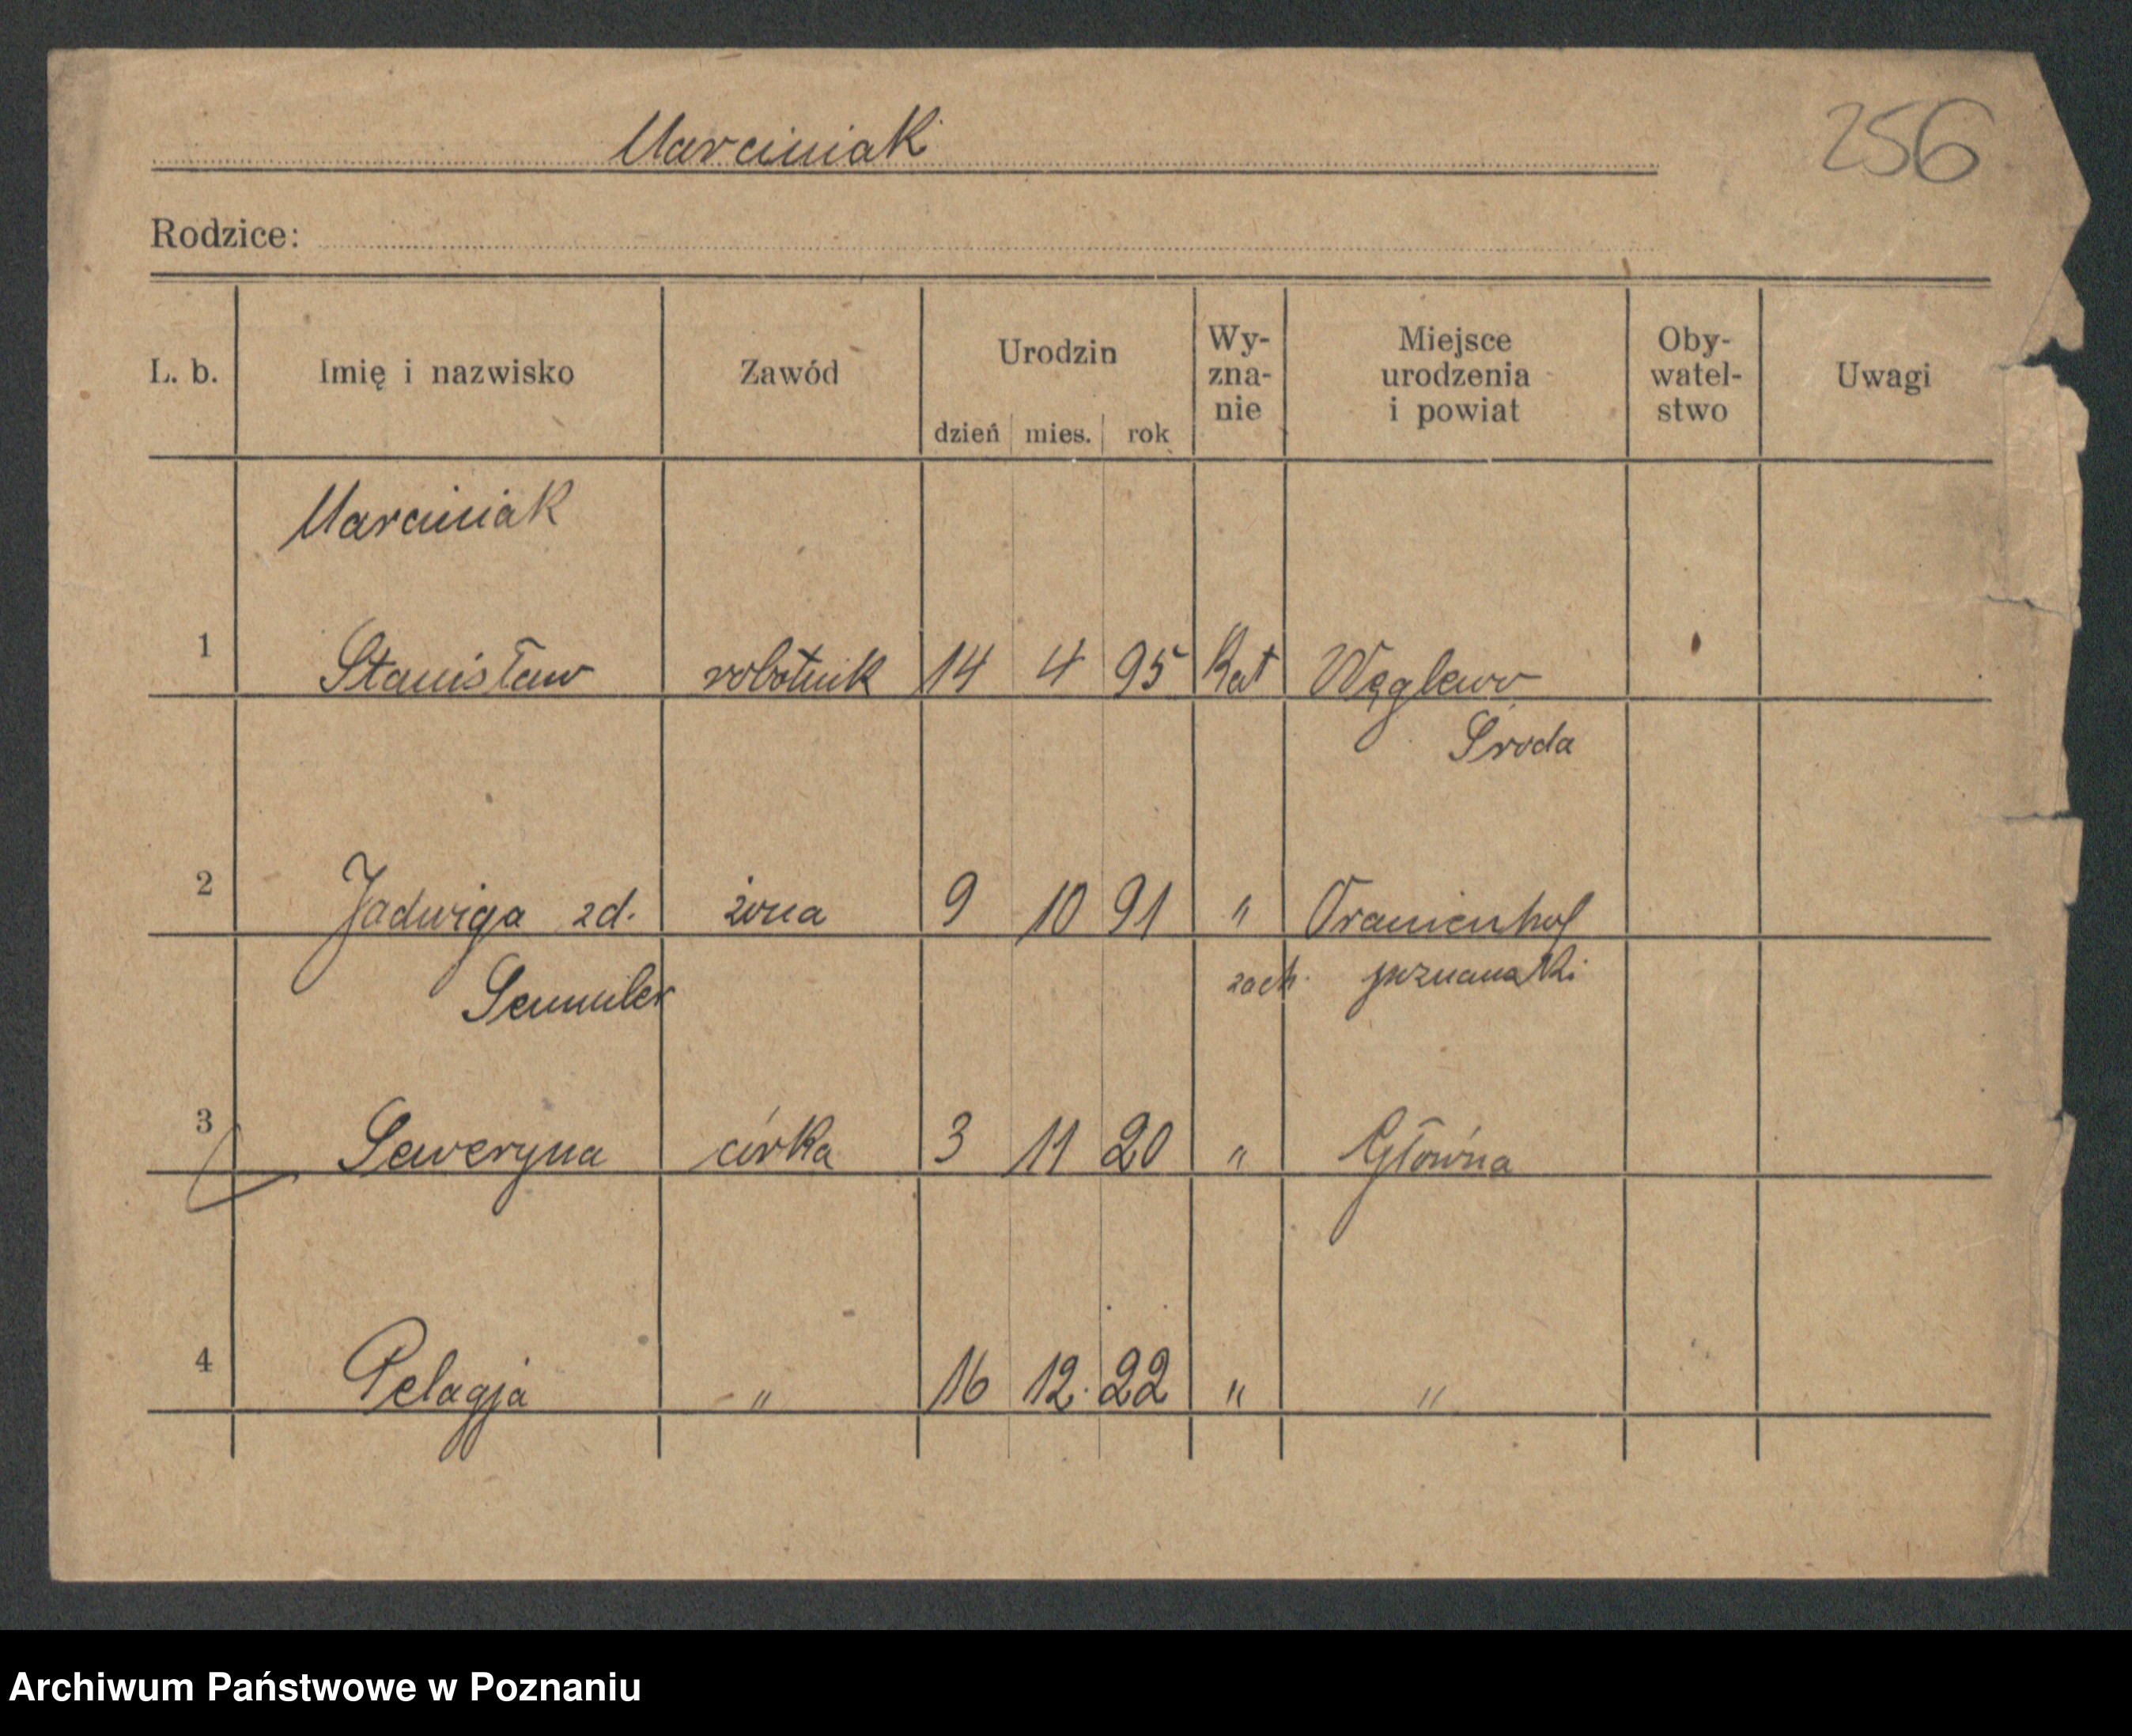 Marciniak
256
Rodzice:
L. b.
Imię i nazwisko
Zawód
Urodzin
dzień mies. rok
Wy-
zna-
nie
Miejsce
urodzenia
i powiat
Oby-
watel-
stwo
Uwagi
Marciniak
1 Stanisław robotnik 14 4 95 Kat Węglewo
Środa
2 Jadwiga zd. żona 9 10 91 " Oranienhof
zach. poznański
3 Seweryna córka 3 11 20 " Główna
4 Pelagja " 16 12. 22 " "
Archiwum Państwowe w Poznaniu